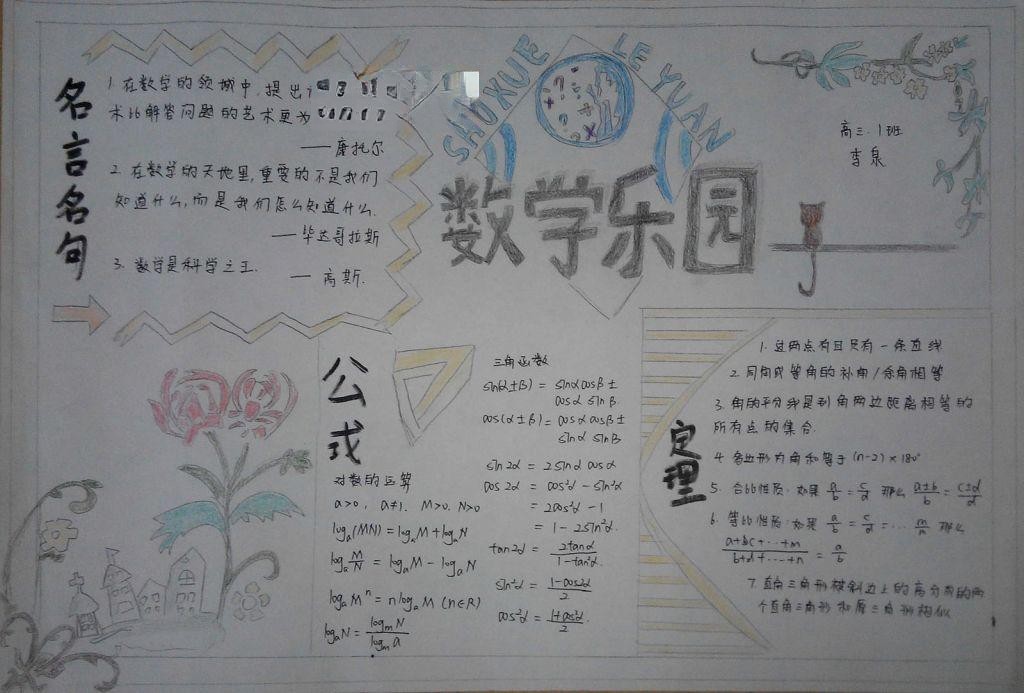 SHUXUE LE YUAN
数学乐园
高三.1班
李泉
名言名句
1. 在数学的领域中, 提出
术比解答问题的艺术更为
——康托尔
2. 在数学的天地里, 重要的不是我们
知道什么, 而是我们怎么知道什么.
——毕达哥拉斯
3. 数学是科学之王.
— 高斯.
公式
对数的运算
a>0, a≠1. M>0. N>0
logₐ(MN) = logₐM + logₐN
logₐ M/N = logₐM - logₐN
logₐMⁿ = n logₐM (n∈R)
logₐN = logₘN / logₘa
三角函数
sin(α±β) = sinα cosβ ±
cosα sinβ.
cos(α±β) = cosα cosβ ±
sinα sinβ
sin2α = 2sinα cosα
cos2α = cos²α - sin²α
= 2cos²α - 1
= 1 - 2sin²α.
tan2α = 2tanα / 1-tan²α.
sin²α = 1-cos2α / 2
cos²α = 1+cos2α / 2.
定理
1. 过两点有且只有一条直线
2. 同角或等角的补角/余角相等
3. 角的平分线是到角两边距离相等的
所有点的集合.
4. 多边形内角和等于(n-2)×180°
5. 合比性质: 如果 a/b = c/d 那么 a±b/b = c±d/d
6. 等比性质: 如果 a/b = c/d = ... m/n 那么
a+bc+...+m / b+d+...+n = a/b
7. 直角三角形被斜边上的高分成的两
个直角三角形和原三角形相似